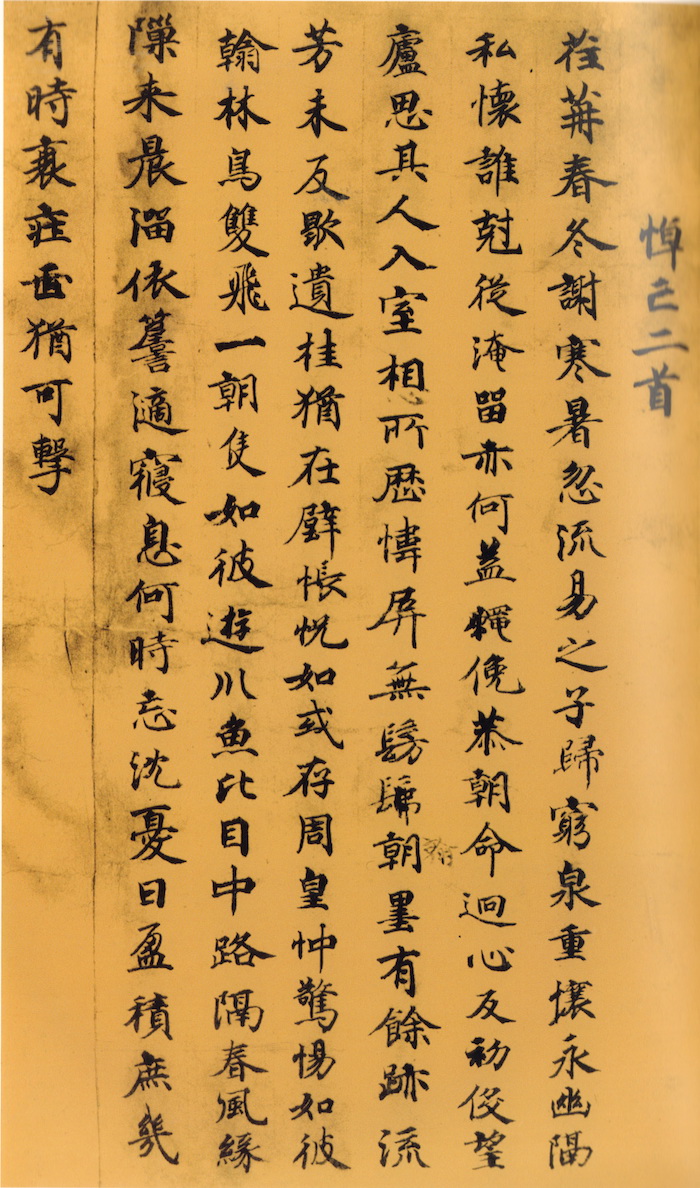 悼亡二首
荏苒春冬謝寒暑忽流易之子歸窮泉重壤永幽隔
私懷誰尅從淹留亦何益黽俛恭朝命迴心反初役望
廬思其人入室想所歷幃屏無髣髴朝翰墨有餘跡流
芳未及歇遺挂猶在壁悵怳如或存周皇忡驚惕如彼
翰林鳥雙飛一朝隻如彼遊川魚比目中路隔春風緣
隟来晨溜依簷適寢息何時忘沈憂日盈積庶幾
有時衰莊缶猶可擊